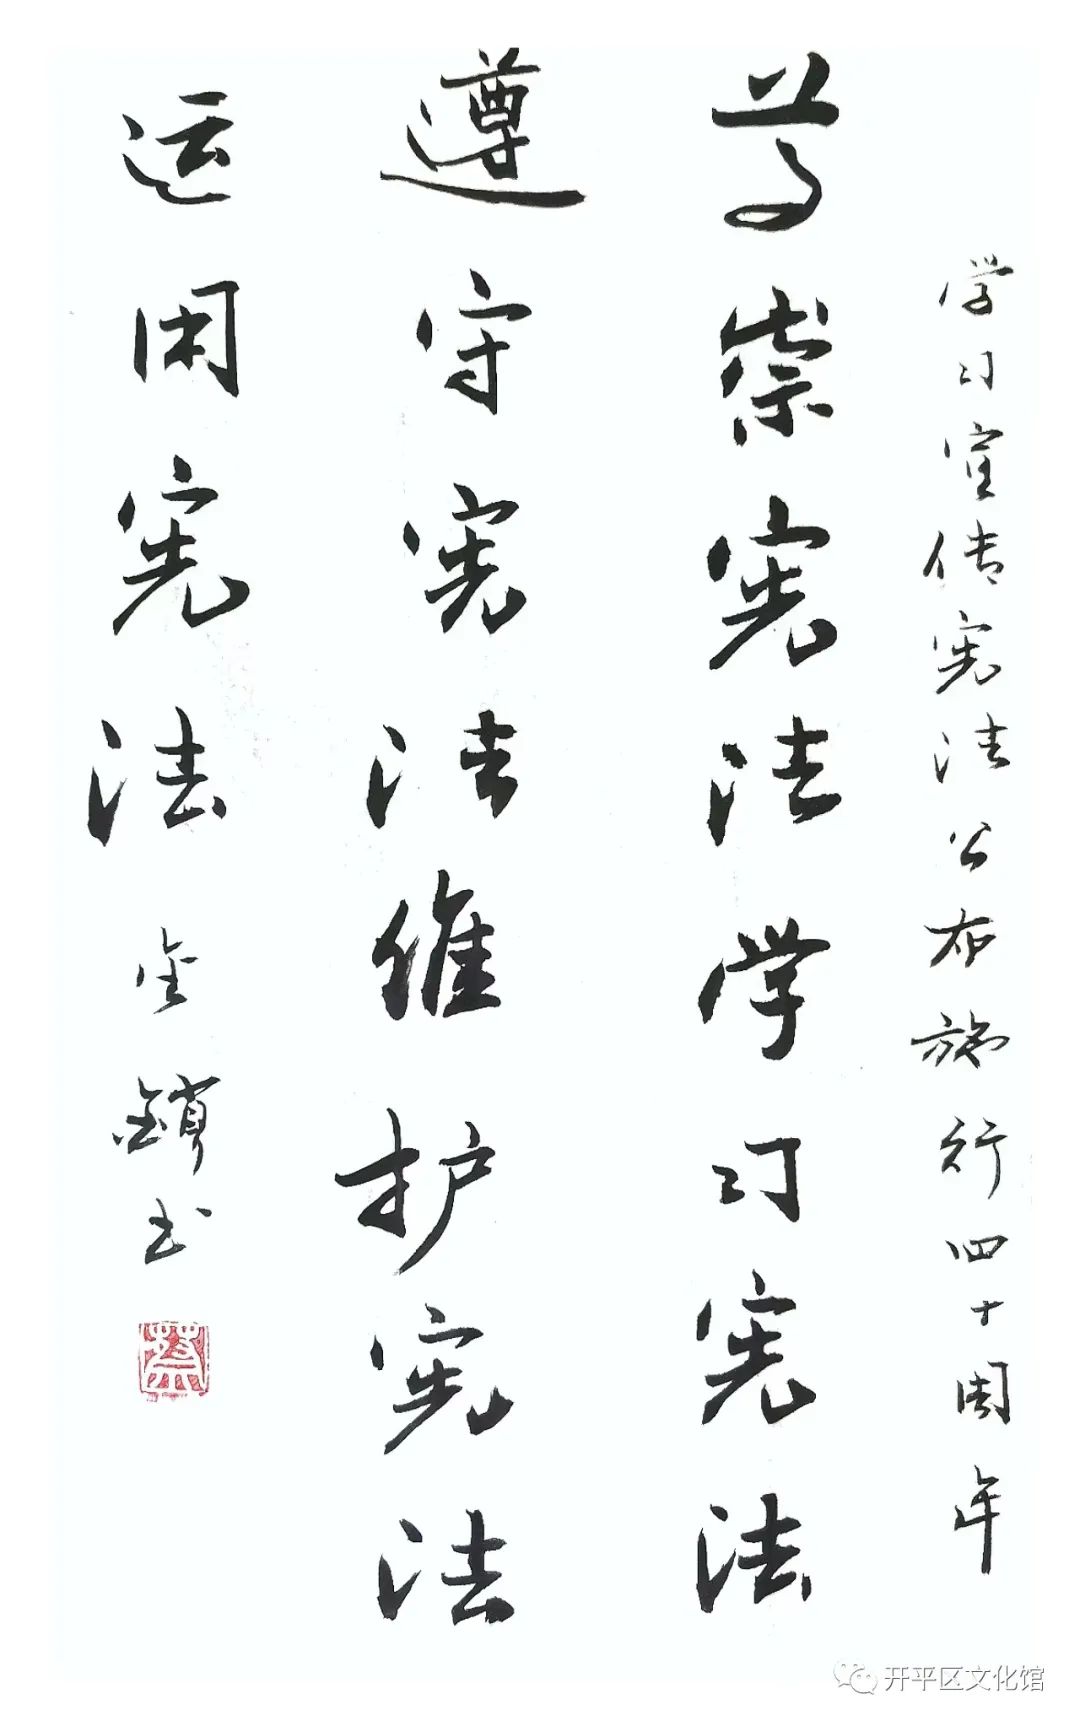 学习宣传宪法公布施行四十周年
尊崇宪法学习宪法
遵守宪法维护宪法
运用宪法
金锁书
蔡
开平区文化馆